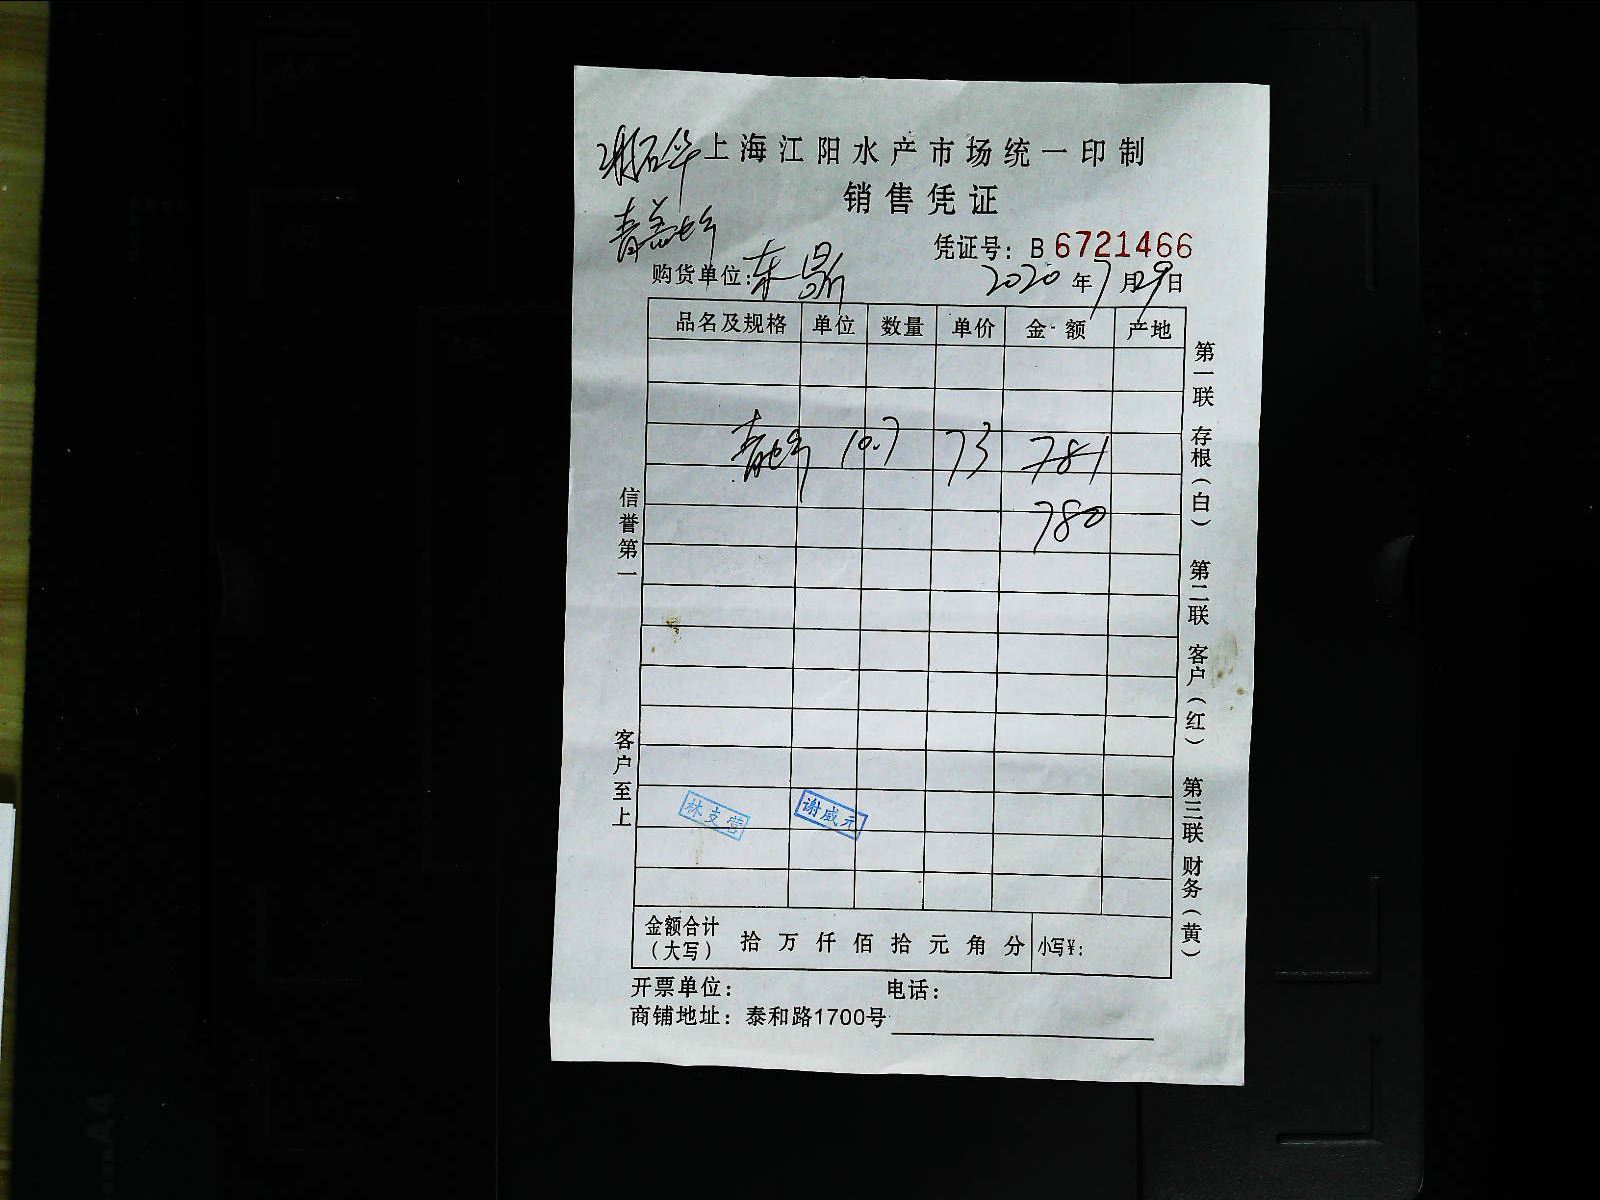 上海江阳水产市场统一印制
销售凭证
凭证号：B 6721466
购货单位：东鼎
2020年7月29日
品名及规格 单位 数量 单价 金额 产地
10.7 73 781
780
信誉第一
客户至上
第一联 存根（白） 第二联 客户（红） 第三联 财务（黄）
林支营 谢威元
金额合计（大写） 拾 万 仟 佰 拾 元 角 分 小写¥：
开票单位： 电话：
商铺地址：泰和路1700号